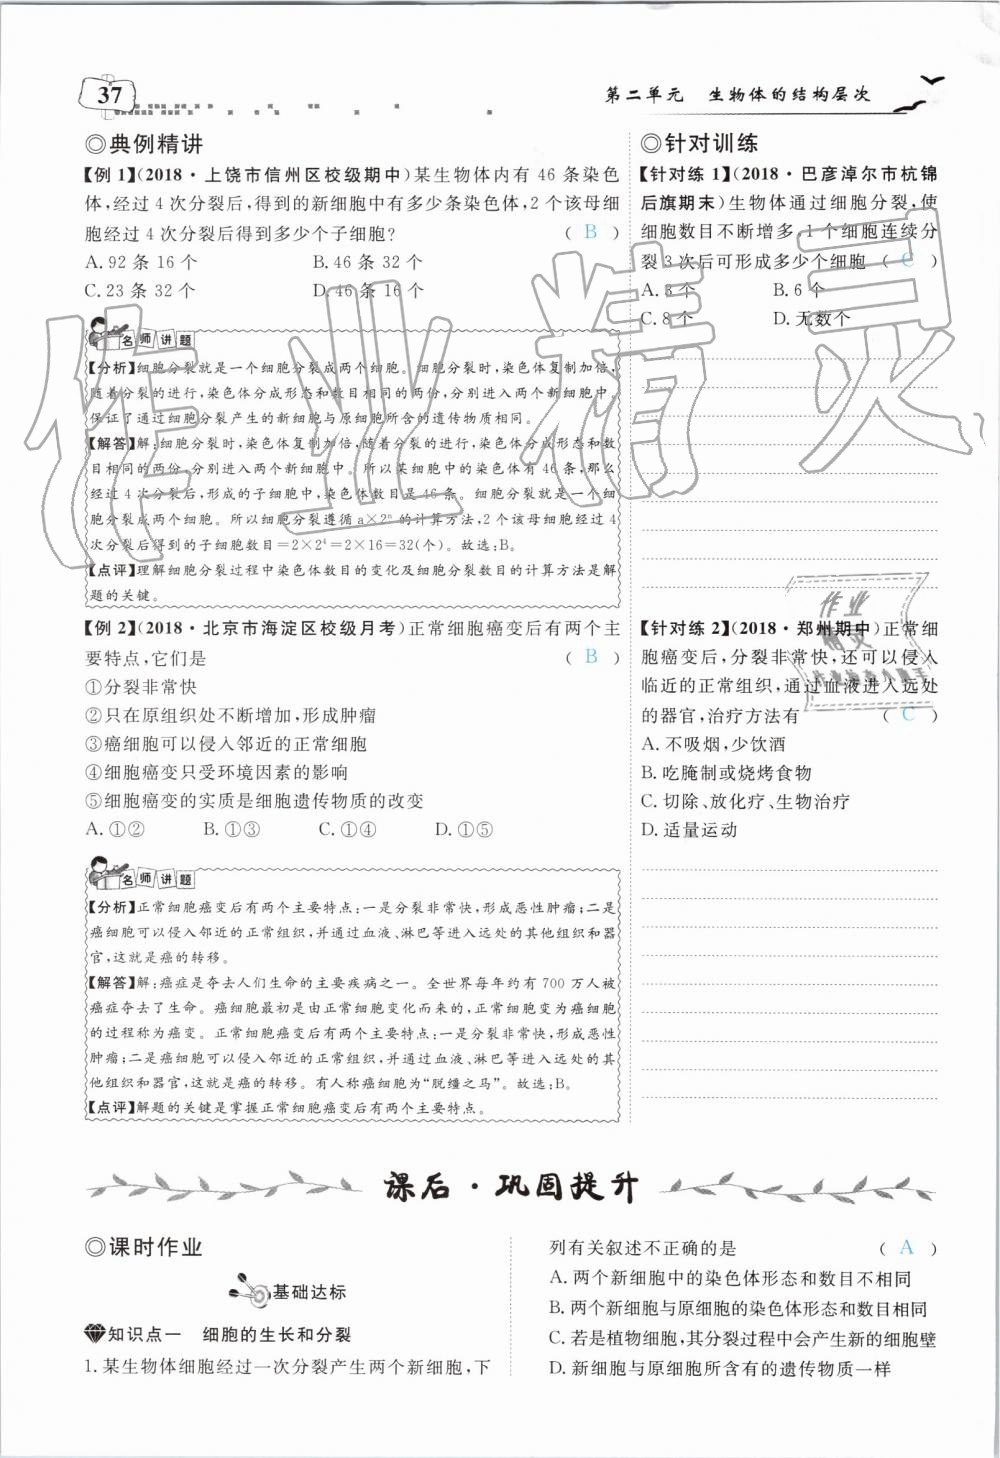 37
第二单元 生物体的结构层次
◎典例精讲
【例 1】(2018·上饶市信州区校级期中)某生物体内有 46 条染色
体,经过 4 次分裂后,得到的新细胞中有多少条染色体,2 个该母细
胞经过 4 次分裂后得到多少个子细胞? ( B )
A. 92 条 16 个 B. 46 条 32 个
C. 23 条 32 个 D. 46 条 16 个
名师讲题
【分析】细胞分裂就是一个细胞分裂成两个细胞。细胞分裂时,染色体复制加倍,
随着分裂的进行,染色体分成形态和数目相同的两份,分别进入两个新细胞中。
保证了通过细胞分裂产生的新细胞与原细胞所含的遗传物质相同。
【解答】解:细胞分裂时,染色体复制加倍,随着分裂的进行,染色体分成形态和数
目相同的两份,分别进入两个新细胞中。所以某细胞中的染色体有 46 条,那么
经过 4 次分裂后,形成的子细胞中,染色体数目是 46 条。细胞分裂就是一个细
胞分裂成两个细胞。所以细胞分裂遵循 a×2ⁿ 的计算方法,2 个该母细胞经过 4
次分裂后得到的子细胞数目=2×2⁴=2×16=32(个)。故选:B。
【点评】理解细胞分裂过程中染色体数目的变化及细胞分裂数目的计算方法是解
题的关键。
【例 2】(2018·北京市海淀区校级月考)正常细胞癌变后有两个主
要特点,它们是 ( B )
①分裂非常快
②只在原组织处不断增加,形成肿瘤
③癌细胞可以侵入邻近的正常细胞
④细胞癌变只受环境因素的影响
⑤细胞癌变的实质是细胞遗传物质的改变
A. ①② B. ①③ C. ①④ D. ①⑤
名师讲题
【分析】正常细胞癌变后有两个主要特点:一是分裂非常快,形成恶性肿瘤;二是
癌细胞可以侵入邻近的正常组织,并通过血液、淋巴等进入远处的其他组织和器
官,这就是癌的转移。
【解答】解:癌症是夺去人们生命的主要疾病之一。全世界每年约有 700 万人被
癌症夺去了生命。癌细胞最初是由正常细胞变化而来的,正常细胞变为癌细胞
的过程称为癌变。正常细胞癌变后有两个主要特点:一是分裂非常快,形成恶性
肿瘤;二是癌细胞可以侵入邻近的正常组织,并通过血液、淋巴等进入远处的其
他组织和器官,这就是癌的转移。有人称癌细胞为“脱缰之马”。故选:B。
【点评】解题的关键是掌握正常细胞癌变后有两个主要特点。
◎针对训练
【针对练 1】(2018·巴彦淖尔市杭锦
后旗期末)生物体通过细胞分裂,使
细胞数目不断增多,1 个细胞连续分
裂 3 次后可形成多少个细胞 ( C )
A. 3 个 B. 6 个
C. 8 个 D. 无数个
【针对练 2】(2018·郑州期中)正常细
胞癌变后,分裂非常快,还可以侵入
临近的正常组织,通过血液进入远处
的器官,治疗方法有 ( C )
A. 不吸烟,少饮酒
B. 吃腌制或烧烤食物
C. 切除、放化疗、生物治疗
D. 适量运动
作业精灵
作业
精灵
课后·巩固提升
◎课时作业
基础达标
知识点一 细胞的生长和分裂
1. 某生物体细胞经过一次分裂产生两个新细胞,下
列有关叙述不正确的是 ( A )
A. 两个新细胞中的染色体形态和数目不相同
B. 两个新细胞与原细胞的染色体形态和数目相同
C. 若是植物细胞,其分裂过程中会产生新的细胞壁
D. 新细胞与原细胞所含有的遗传物质一样